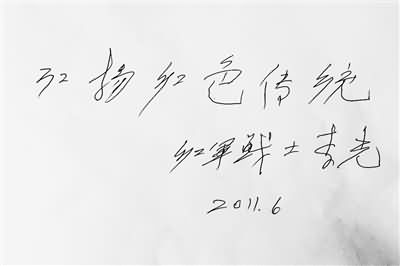 弘揚红色传统
红軍战士李光
2011.6